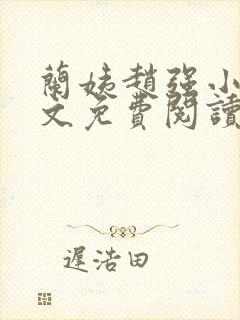 蘭姨趙强小
文免費閱讀
遲浩田